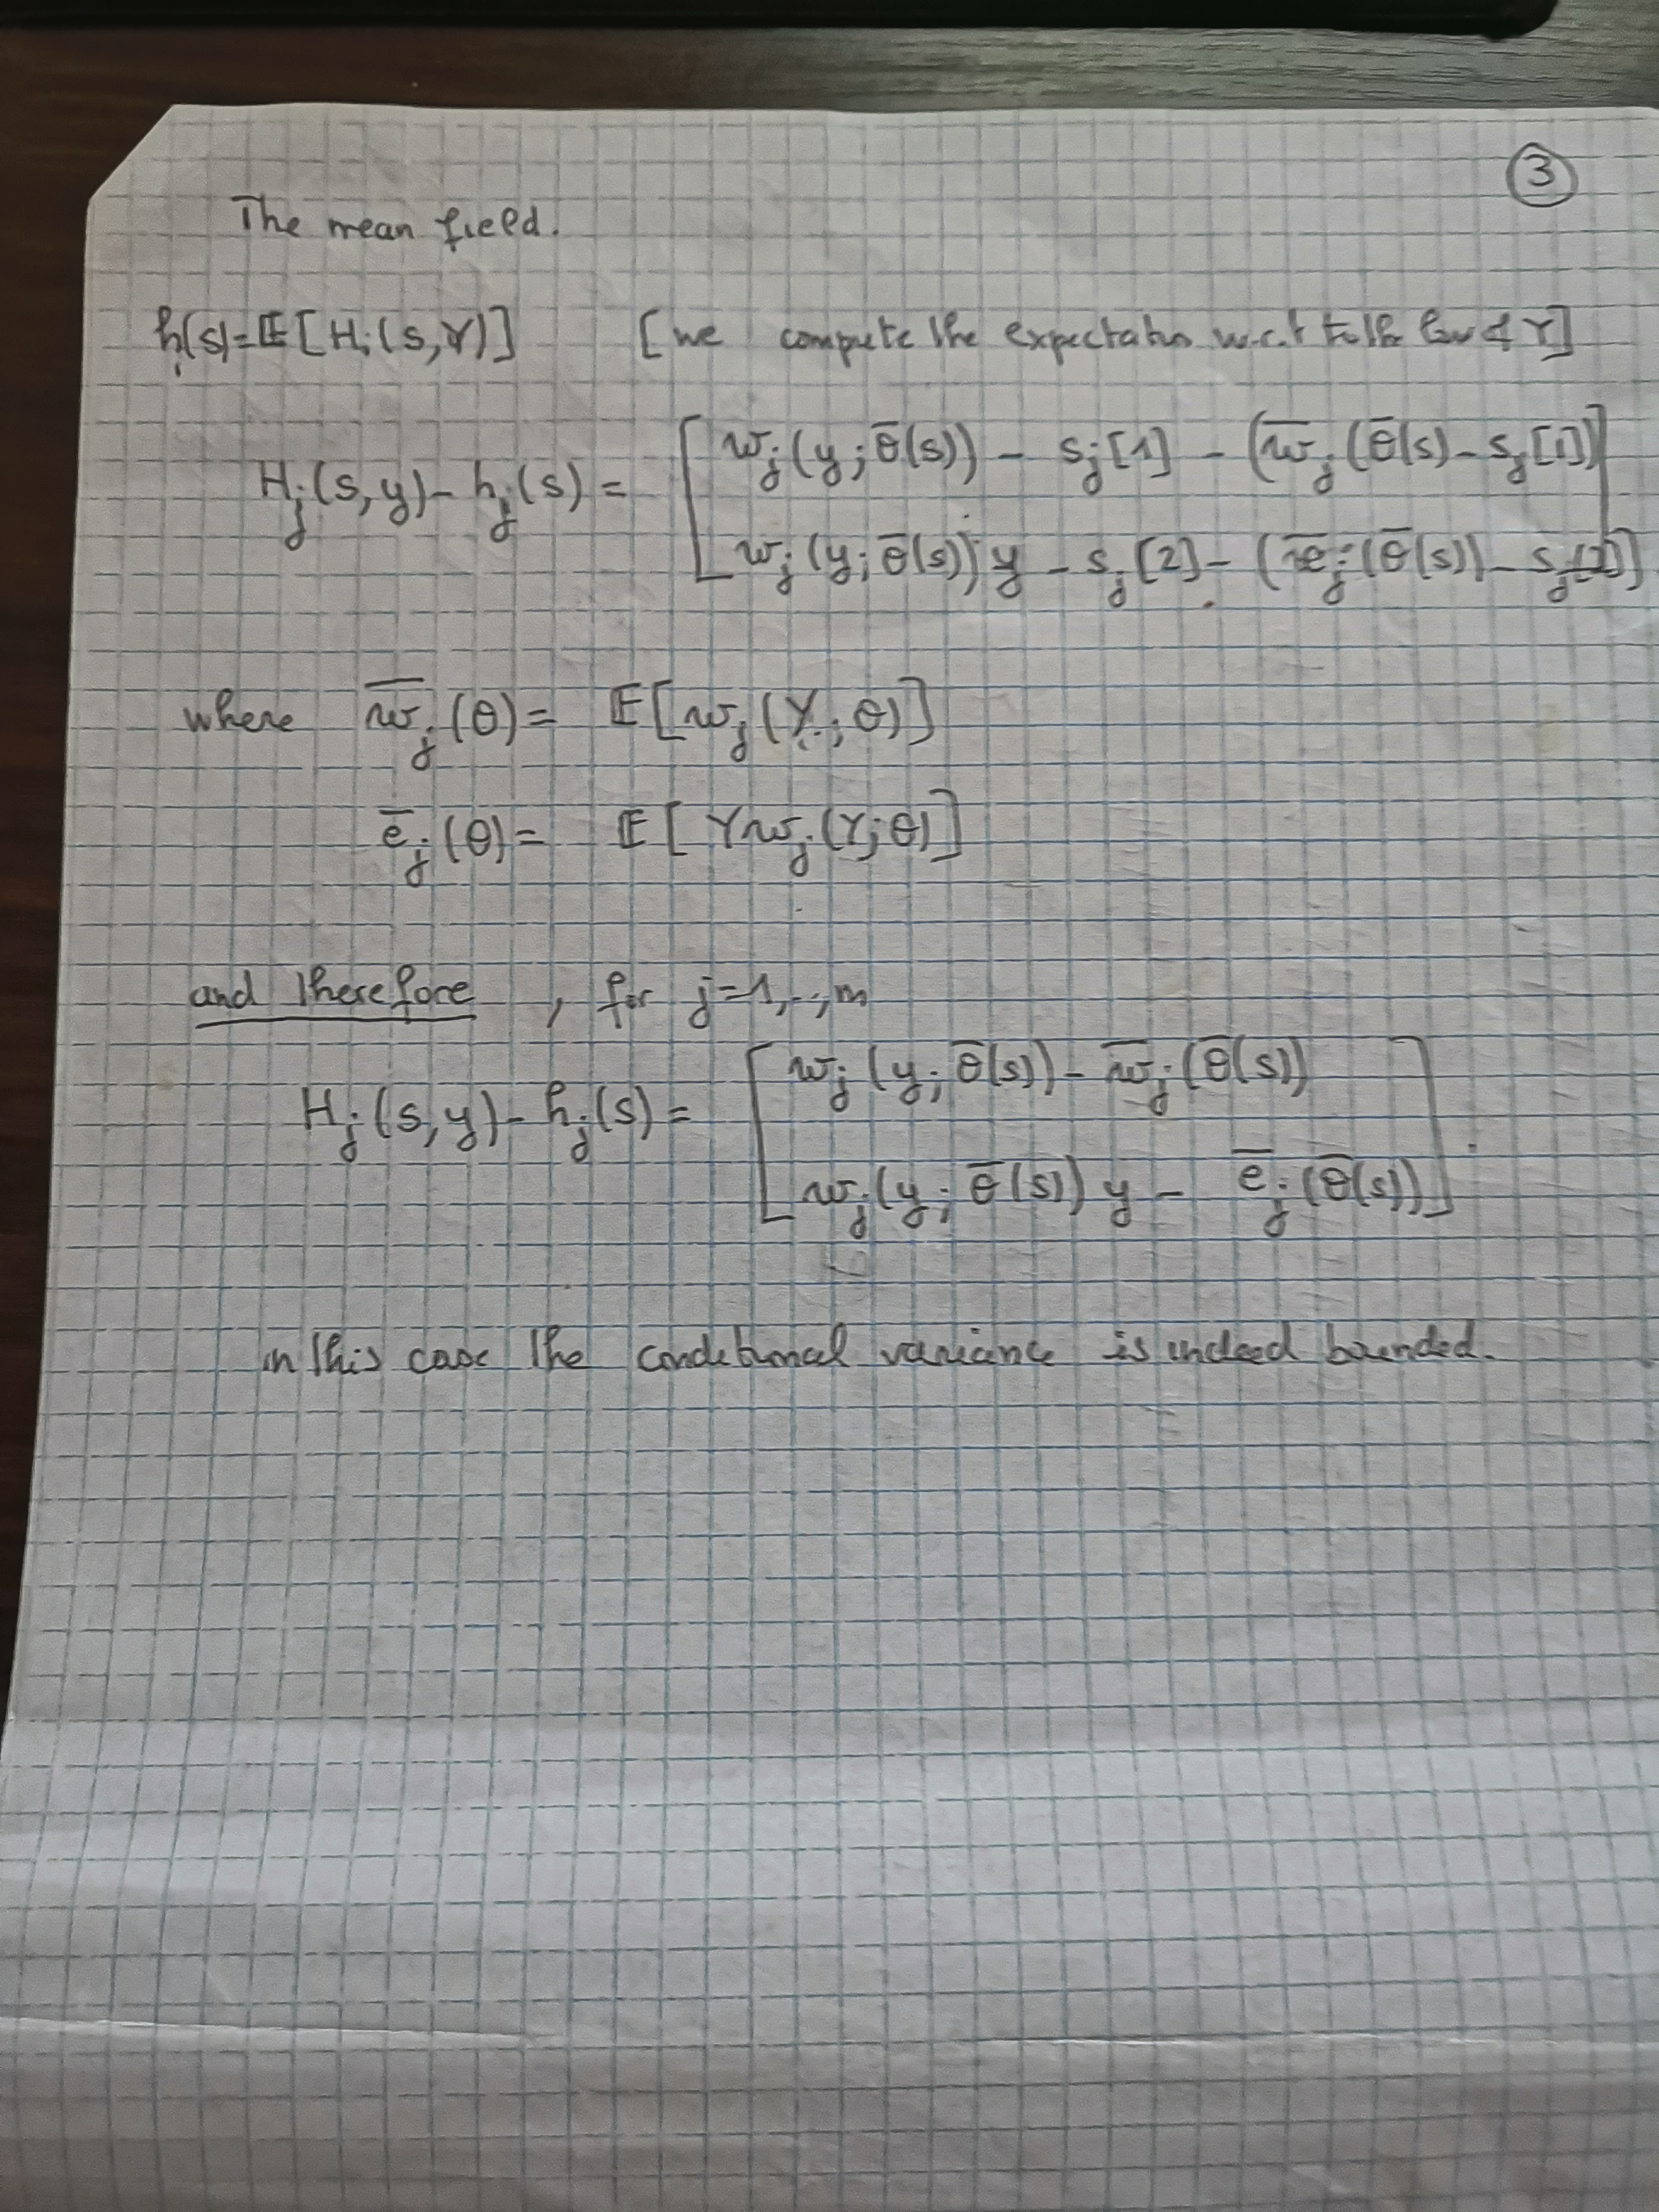 ③
The mean field.
h_j(s) = 𝔼[H_j(s,Y)] [we compute the expectation w.r.t to the law of Y]
H_j(s,y) - h_j(s) = [ w_j(y; θ̄(s)) - s_j[1] - (w̄_j(θ̄(s) - s_j[1])
w_j(y; θ̄(s)) y - s_j[2] - (ē_j(θ̄(s)) - s_j[2]) ]
where w̄_j(θ) = 𝔼[w_j(Y; θ)]
ē_j(θ) = 𝔼[Y w_j(Y; θ)]
and therefore, for j=1,..,m
H_j(s,y) - h_j(s) = [ w_j(y; θ̄(s)) - w̄_j(θ̄(s))
w_j(y; θ̄(s)) y - ē_j(θ̄(s)) ].
in this case the conditional variance is indeed bounded.